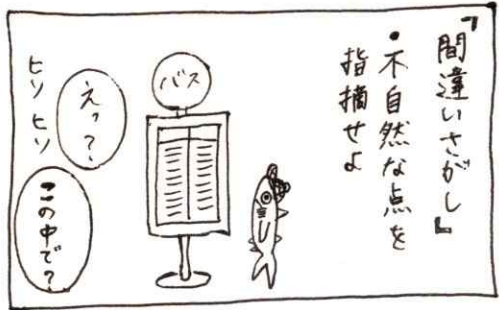 『間違いさがし』
・不自然な点を
指摘せよ
バス
えっ?
ヒソヒソ
この中で?